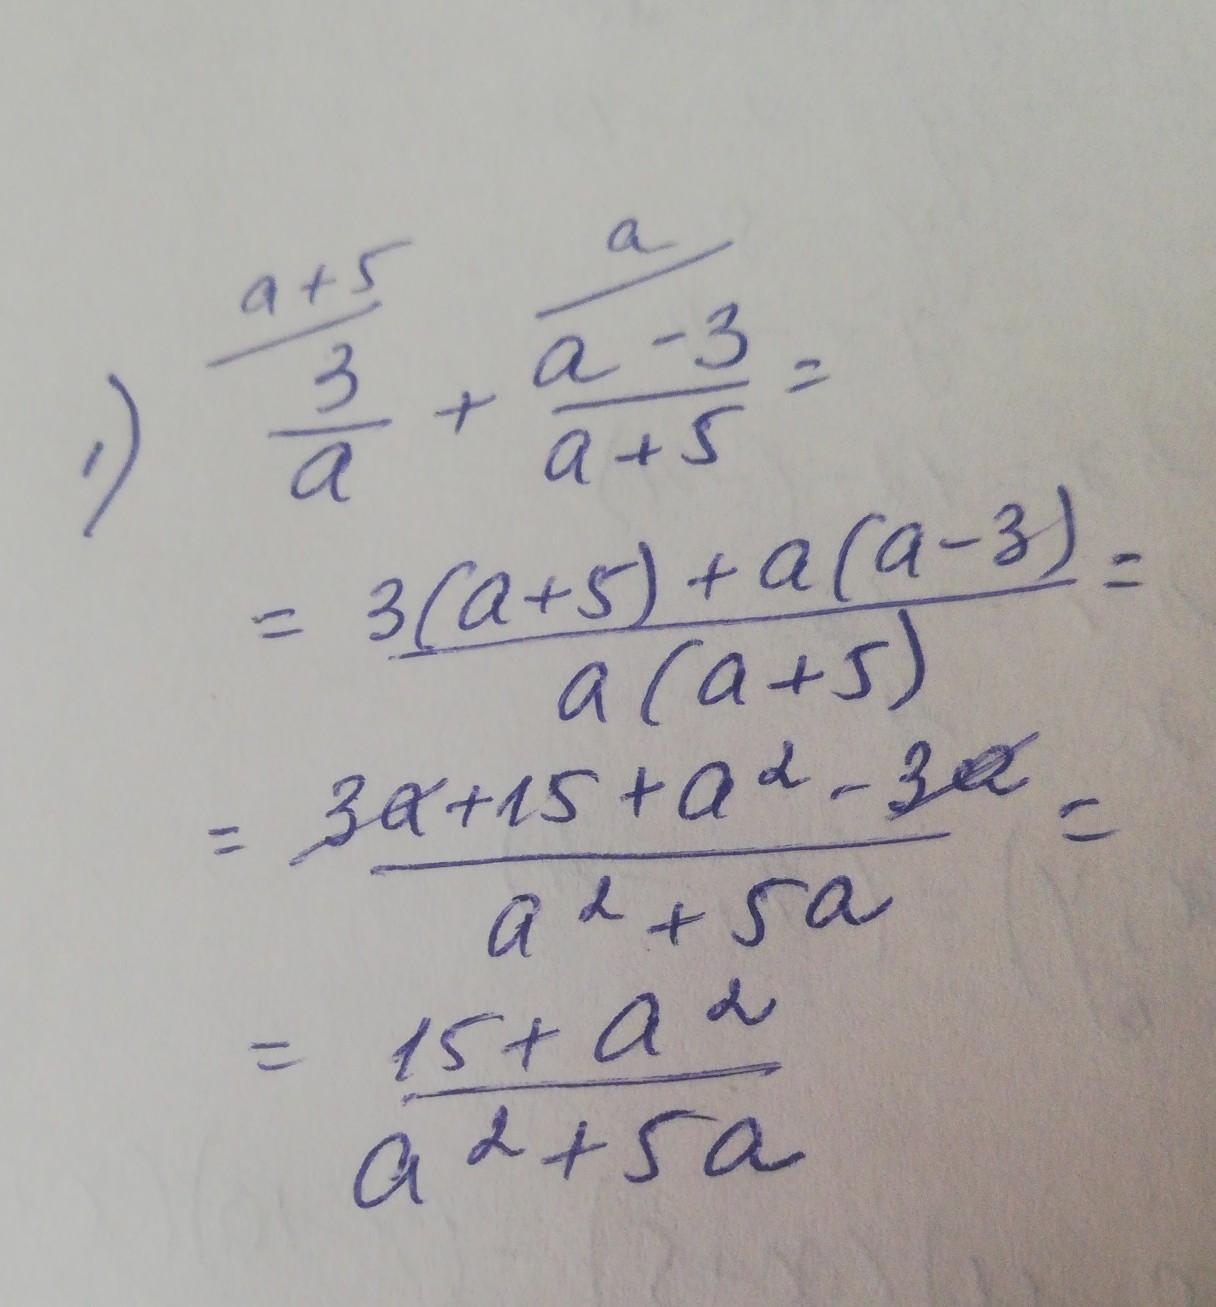 a+5 a
1) 3/a + (a-3)/(a+5) =
= (3(a+5)+a(a-3))/(a(a+5)) =
= (3a+15+a²-3a)/(a²+5a) =
= (15+a²)/(a²+5a)